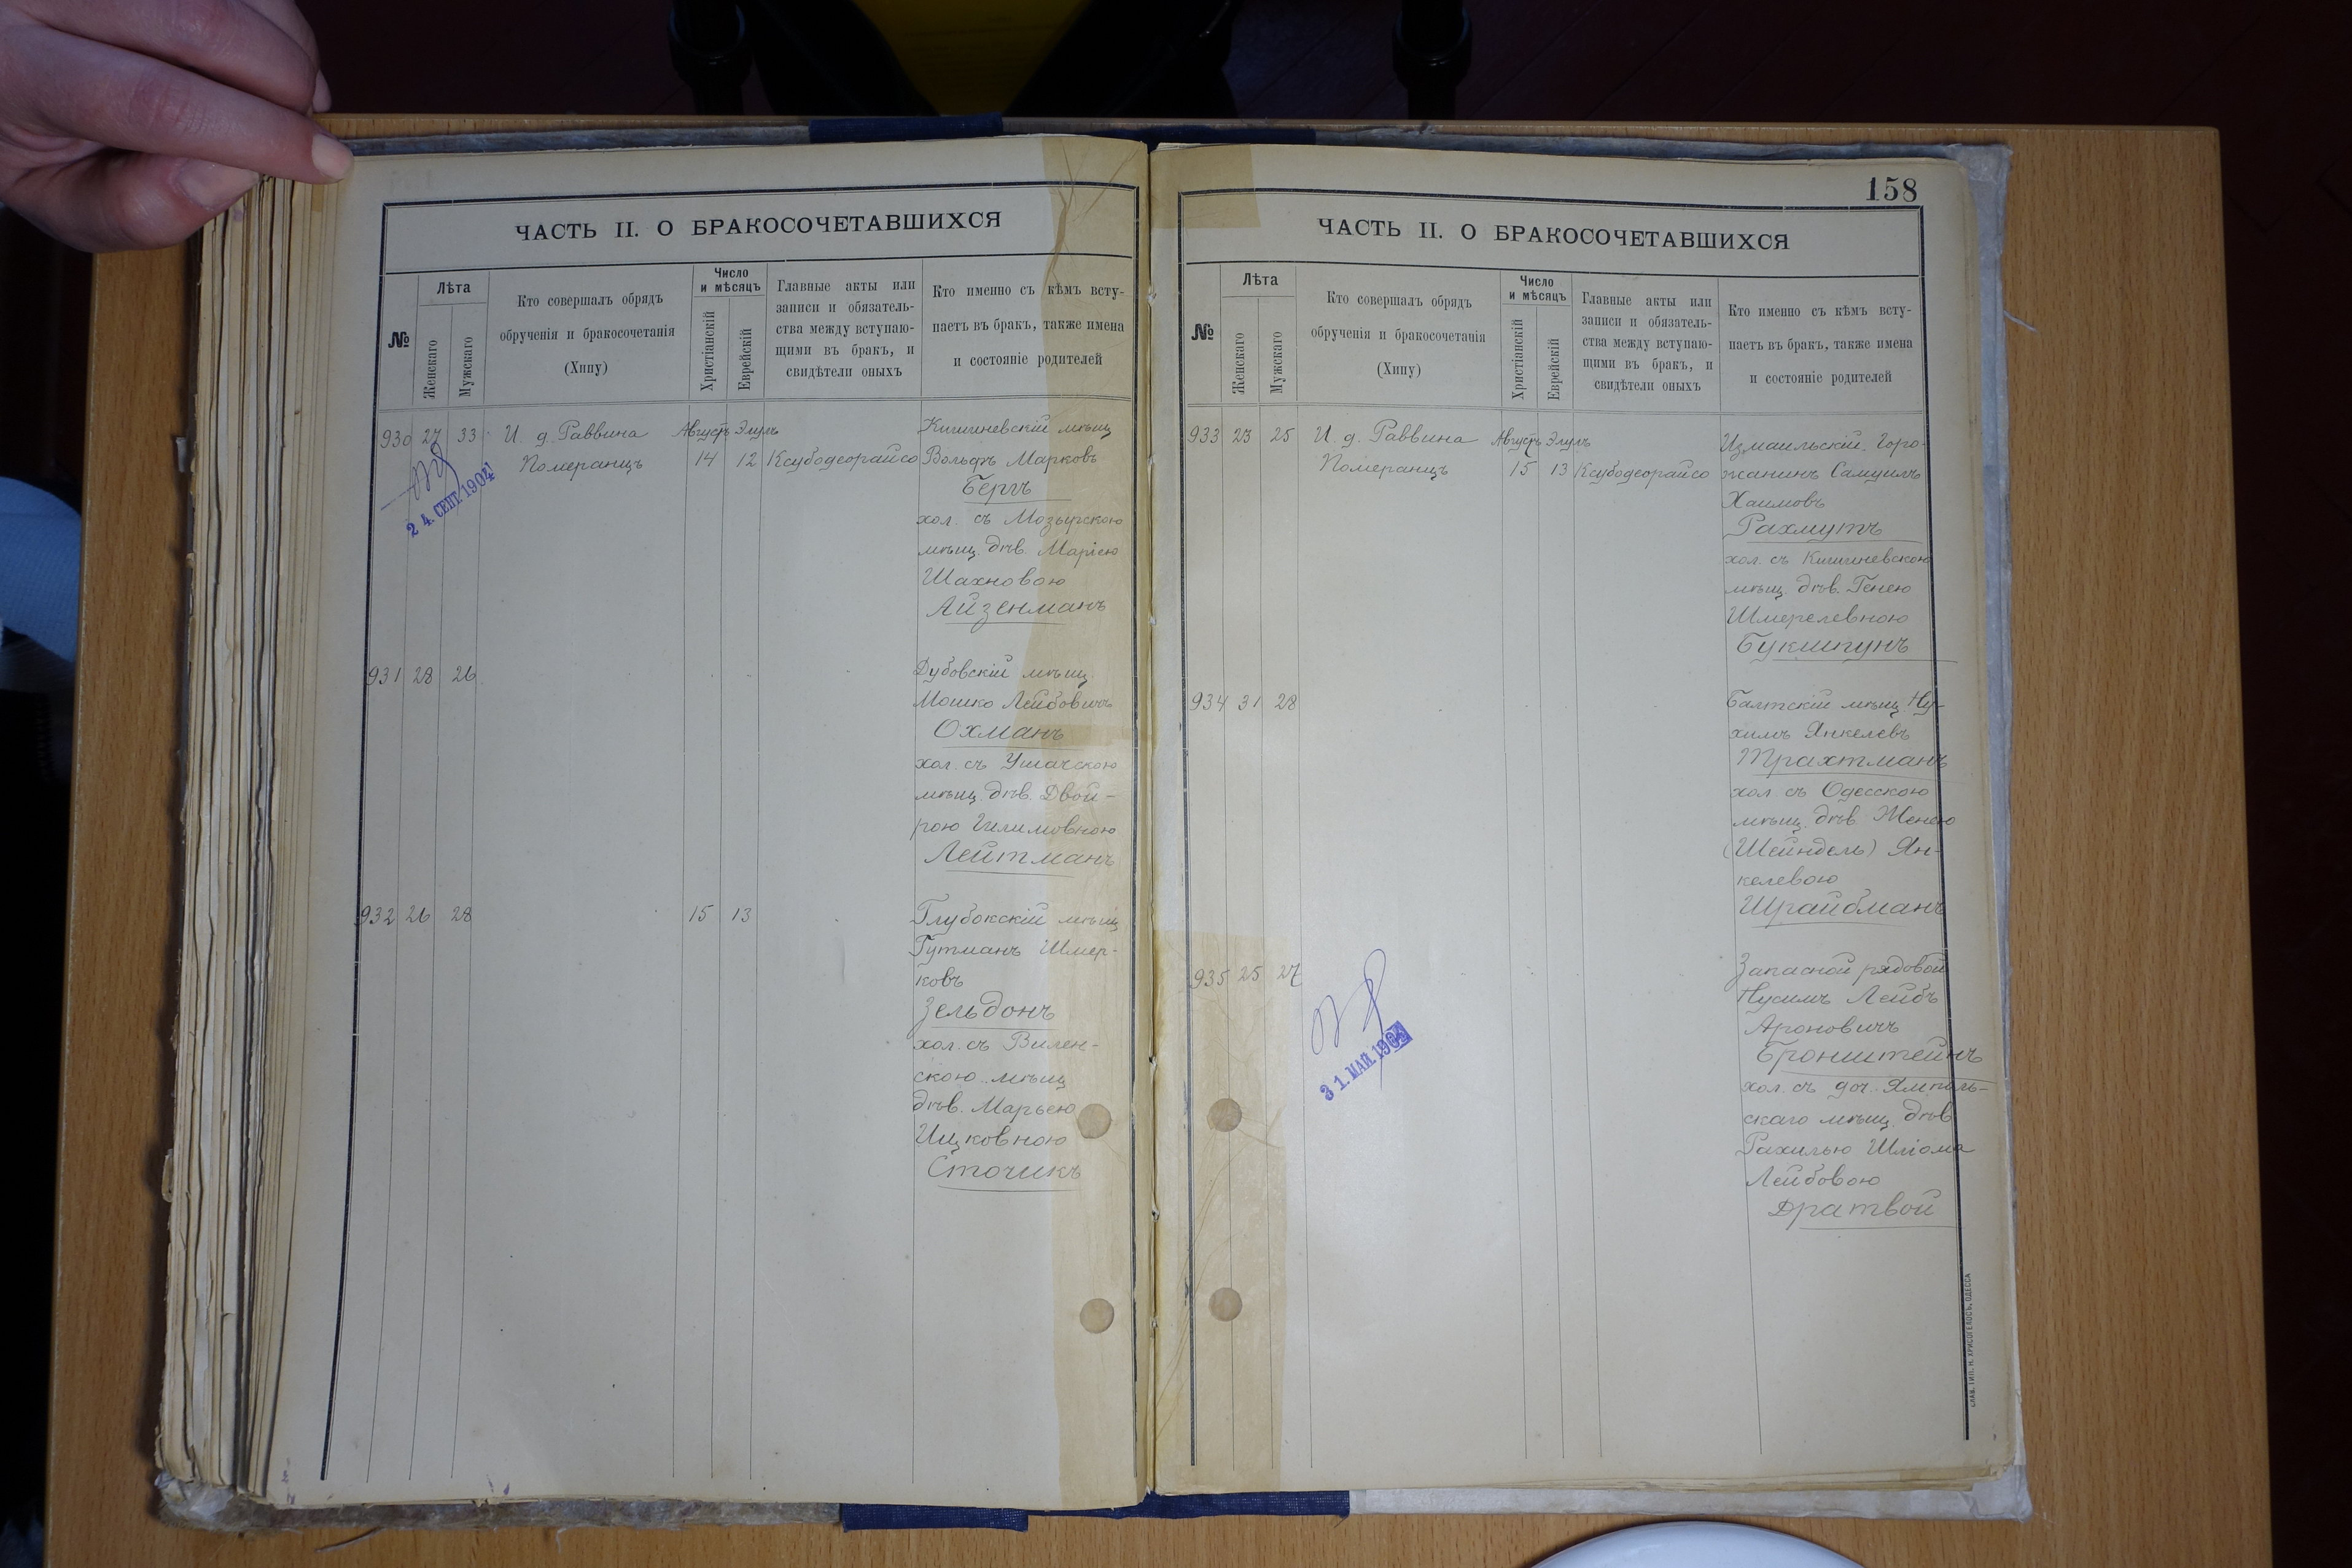 ЧАСТЬ II. О БРАКОСОЧЕТАВШИХСЯ
№
Лѣта
Женскаго
Мужскаго
Кто совершалъ обрядъ
обрученія и бракосочетанія
(Хипу)
Число
и мѣсяцъ
Христіанскій
Еврейскій
Главные акты или
записи и обязатель-
ства между вступаю-
щими въ бракъ, и
свидѣтели оныхъ
Кто именно съ кѣмъ всту-
паетъ въ бракъ, также имена
и состояніе родителей
930 27 33 И. д. Раввина Августъ Элулъ Кишиневскій мѣщ
Померанцъ 14 12 Ксубодеорайсо Вольфъ Марковъ
24. СЕНТ. 1904
Бергъ
хол. съ Мозырскою
мѣщ. дѣв. Маріею
Шахновою
Айзенманъ
931 28 26 Дубовскій мѣщ.
Мошко Лейбовичъ
Охманъ
хол. съ Ушачскою
мѣщ. дѣв. Двой-
рою
Лейтманъ
932 26 28 15 13 Глубокскій мѣщ
Гутманъ Шмер-
ковъ
Зельдонъ
хол. съ Вилен-
скою мѣщ
дѣв. Марьею
Ицковною
Сточикъ
158
ЧАСТЬ II. О БРАКОСОЧЕТАВШИХСЯ
№
Лѣта
Женскаго
Мужскаго
Кто совершалъ обрядъ
обрученія и бракосочетанія
(Хипу)
Число
и мѣсяцъ
Христіанскій
Еврейскій
Главные акты или
записи и обязатель-
ства между вступаю-
щими въ бракъ, и
свидѣтели оныхъ
Кто именно съ кѣмъ всту-
паетъ въ бракъ, также имена
и состояніе родителей
933 23 25 И. д. Раввина Августъ Элулъ Измаильскій Горо-
Померанцъ 15 13 Ксубодеорайсо жанинъ Самуилъ
Хаимовъ
Рахмутъ
хол. съ Кишиневскою
мѣщ. дѣв. Генею
Шмерелевною
Букшпунъ
934 31 28 Балтскій мѣщ. Ну-
химъ Янкелевъ
Трахтманъ
хол. съ Одесскою
мѣщ. дѣв. Женею
(Шейндель) Ян-
келевою
Шрайбманъ
935 25 27 Запасной рядовой
Нусимъ Лейбъ
Ароновичъ
Бронштейнъ
31. МАЙ. 1904
хол. съ доч. Ямполь-
скаго мѣщ. дѣв
Рахилью Шліома
Лейбовою
Дратвой
СЛАВ. ТИП. Н. ХРИСОГЕЛОСЪ, ОДЕССА